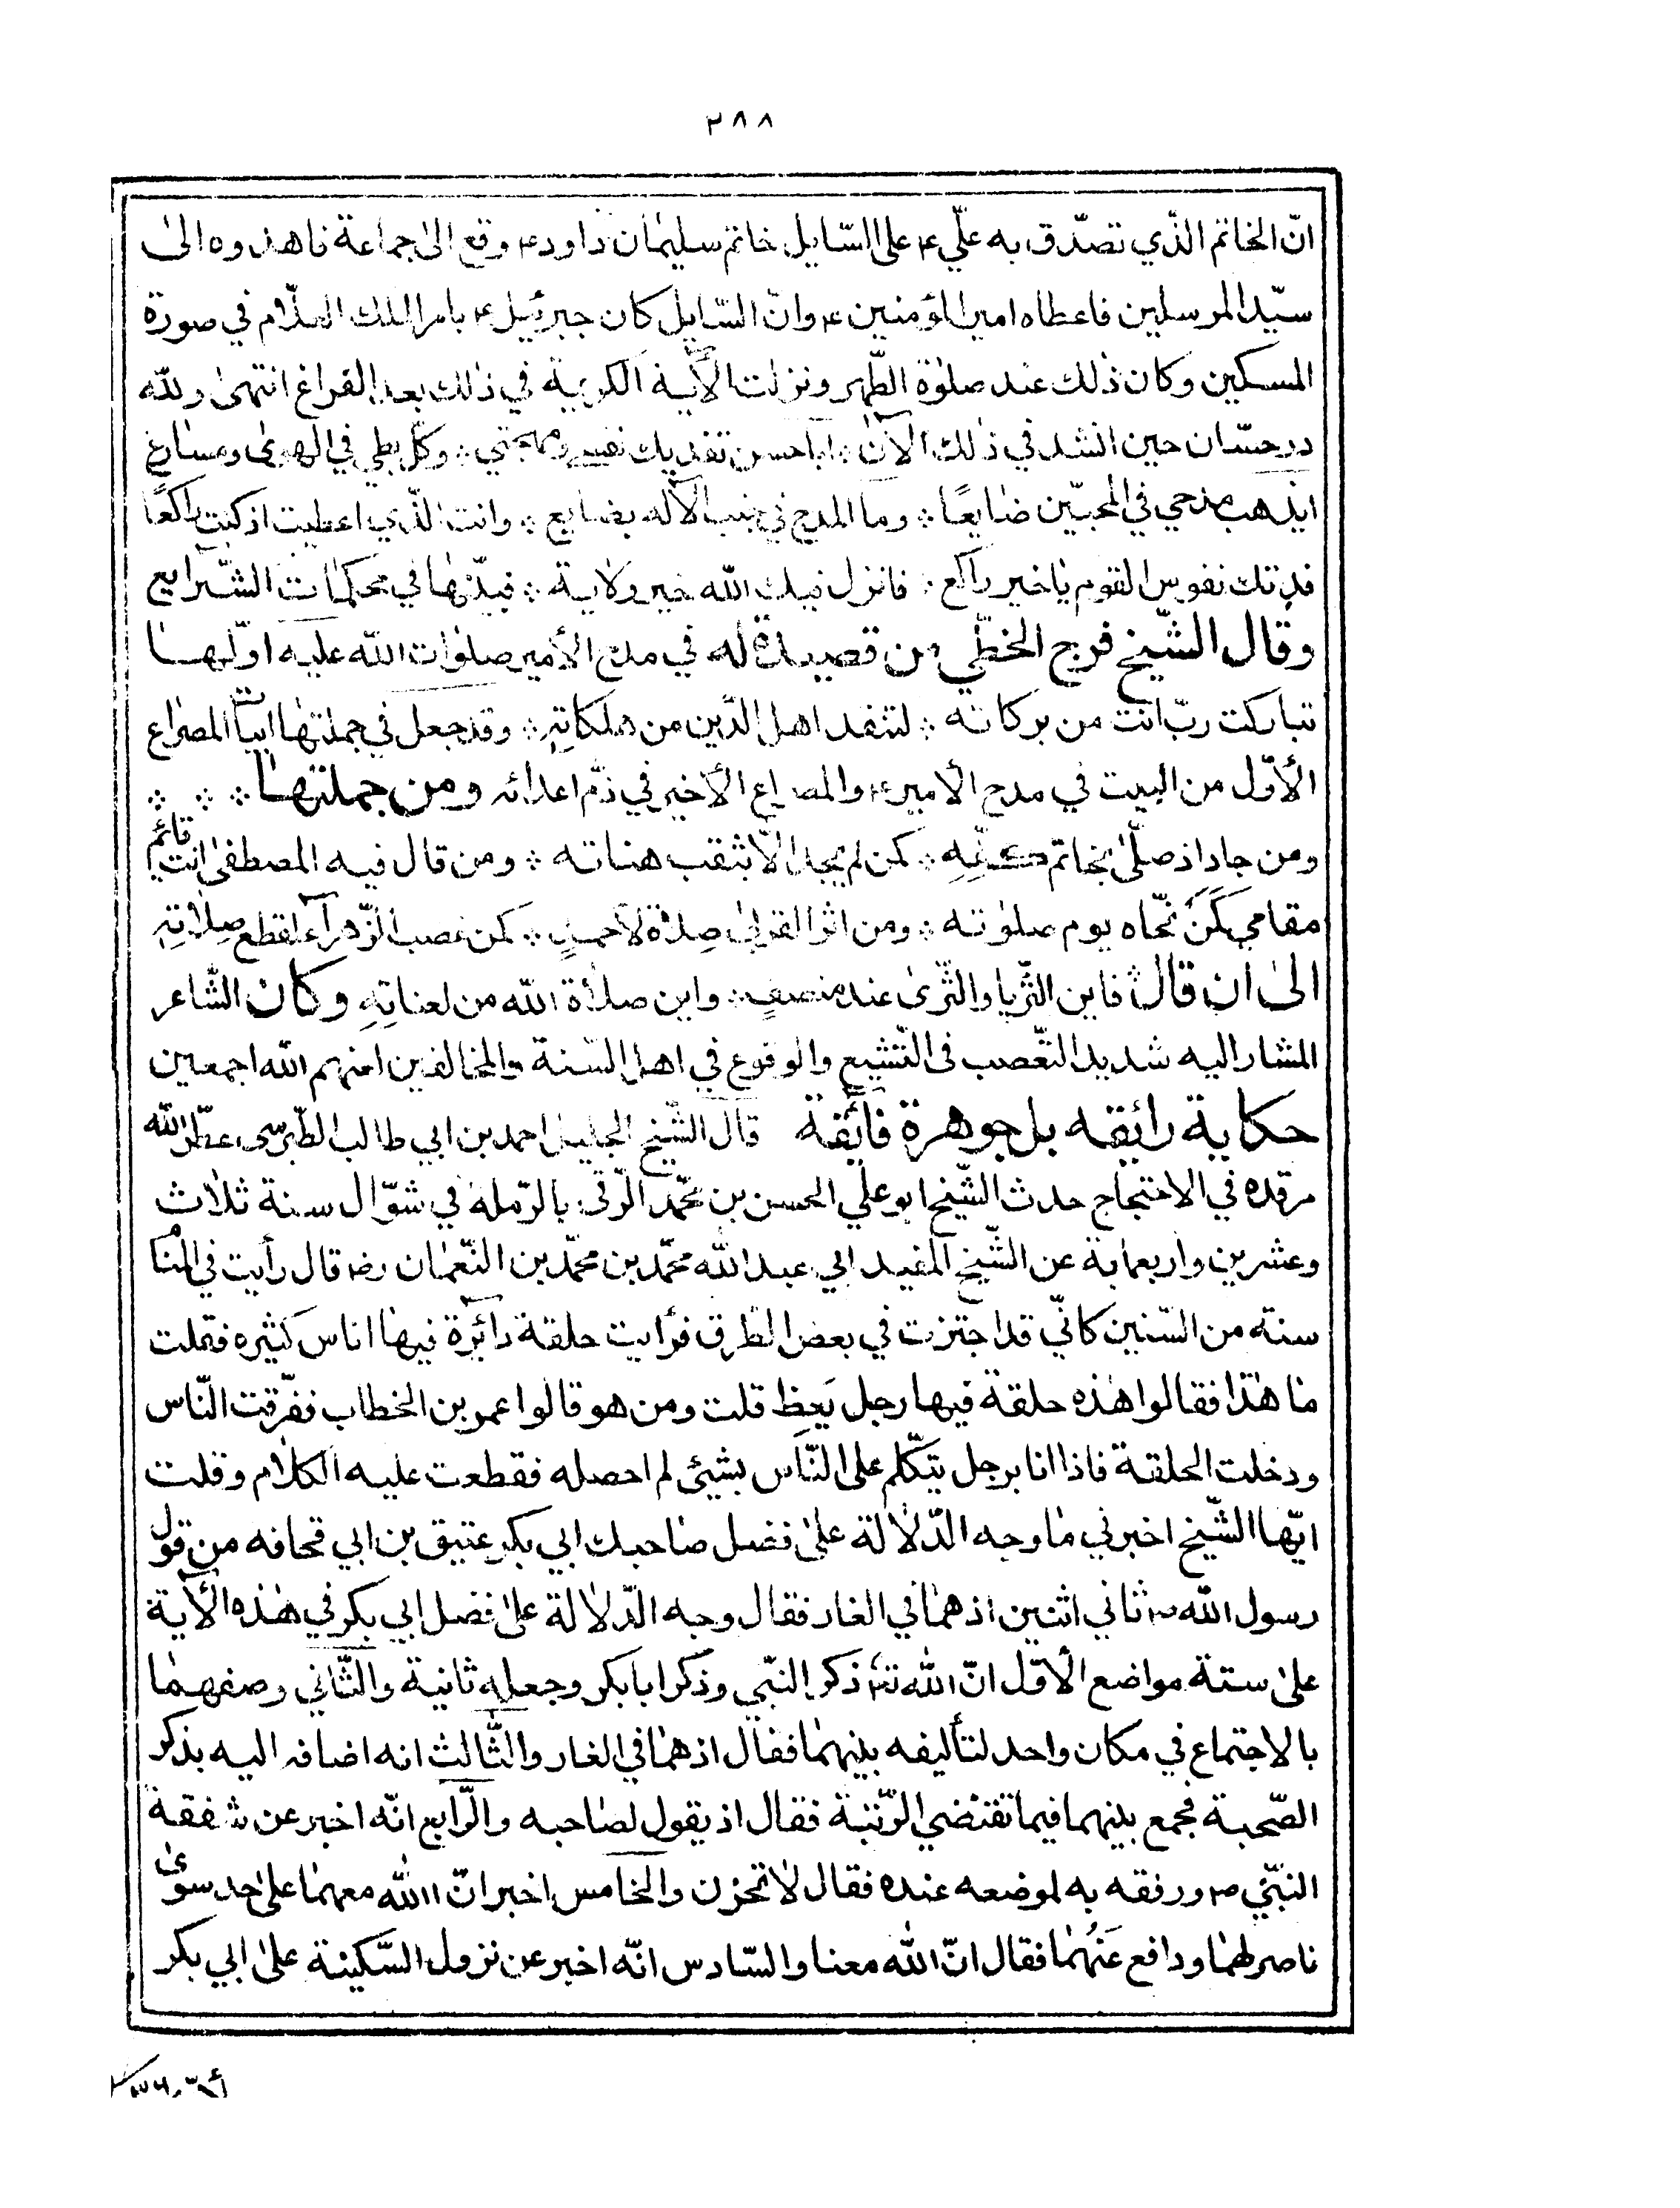 ٢٨٨
انّ الخاتم الذّي تصدّق به علّي ع على السّايل خاتم سليمان داود ع وقع الى جماعة فاهدوه الى
سيّد المرسلين فاعطاه امير المؤمنين ع وانّ السّايل كان جبرئيل ع بامر الملك العلّام في صورة
المسكين وكان ذلك عند صلوة الظّهر ونزلت الأية الكريمة في ذلك بعد الفراغ انتهى ولله
درحسّان حين انشد في ذلك الآن ؞ ابا حسن تفديك نفسي ومهجتي ؞ وكلّ بطي في الهوى ومسارع
ايذهب مدحي في المحبّين ضايعًا ؞ وما المدح في جنب الآله بضايع ؞ وانت الذّي اعطيت اذ كنت راكعًا
فدتك نفوس القوم يا خير راكع ؞ فانزل فيك الله خير ولاية ؞ فبيّنها في محكمات الشّرايع
وقال الشّيخ فرج الخطّي من قصيدة له في مدح الأمير صلوات الله عليه اوّلها
تباركت ربّ انت من بركاته ؞ لتنفد اهل الدّين من هلكاتهِ ؞ وقد جعل في جملتها ابيات المصراع
الأوّل من البيت في مدح الأمير ع والمصراع الأخير في ذمّ اعدائه ومن جملتها ؞ ؞ ؞
ومن جاد اذ صلّى بخاتم ؞ كمن لم يجد الّا بثقب هناته ؞ ومن قال فيه المصطفى انت قائم
مقامي كَمَن نحّاه يوم صلوته ؞ ومن اثر القربى صِلاة لأحمدٍ ؞ كمن غصب الزّهرآء لقطع صِلاتهِ
الى ان قال فاين الثّريا والثّرى عند منصفٍ ؞ واين صلاة الله من لعناتِهِ وكان الشّاعر
المشار اليه شديد التّعصب فى التّشيع والوقوع في اهل السّنة والمخالفين لعنهم الله اجمعين
حكاية رائقه بل جوهرة فائقة قال الشّيخ الجليل احمد بن ابي طالب الطّبرسى عطّر الله
مرقده في الاحتجاج حدث الشّيخ ابو علي الحسن بن محّمد الرّقى بالرّملة في شوّال سنة ثلاث
وعشرين واربعماية عن الشّيخ المفيد ابي عبد الله محمّد بن محمّد بن النّعمان رض قال رأيت في المنام
سنة من السّنين كانّي قد اجتزت في بعض الطّرق فرأيت حلقة دائرة فيها اناس كثيره فقلت
ما هذا فقالوا هذه حلقة فيها رجل يَعِظ قلت ومن هو قالوا عمر بن الخطاب ففرّقت النّاس
ودخلت الحلقة فاذا انا برجل يتكّلم على النّاس بشيئ لم احصله فقطعت عليه الكلام وقلت
ايّها الشّيخ اخبرني ما وجه الدّلالة على فضل صاحبك ابي بكر عتيق بن ابي قحافه من قول
رسول الله ص ثاني اثنين اذ هما في الغار فقال وجه الدّلالة على فضل ابي بكر في هذه الأية
على ستة مواضع الأوّل انّ الله تع ذكر النّبي وذكر ابا بكر وجعله ثانية والثّاني وصفهما
بالاجتماع في مكان واحد لتأليفه بينهما فقال اذ هما في الغار والثّالث انه اضافه اليه بذكر
الصّحبة فجمع بينهما فيما تقتضي الرّتبة فقال اذ يقول لصاحبه والرّابع انّه اخبر عن شفقة
النبّي ص ورفقه به لموضعه عنده فقال لا تحزن والخامس اخبر انّ الله معهما على حد سوى
ناصر لهما ودافع عَنهُما فقال انّ الله معنا والسّادس انّه اخبر عن نزول السّكينة على ابي بكر